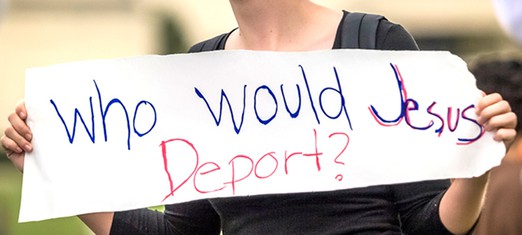 Who would Jesus
Deport?